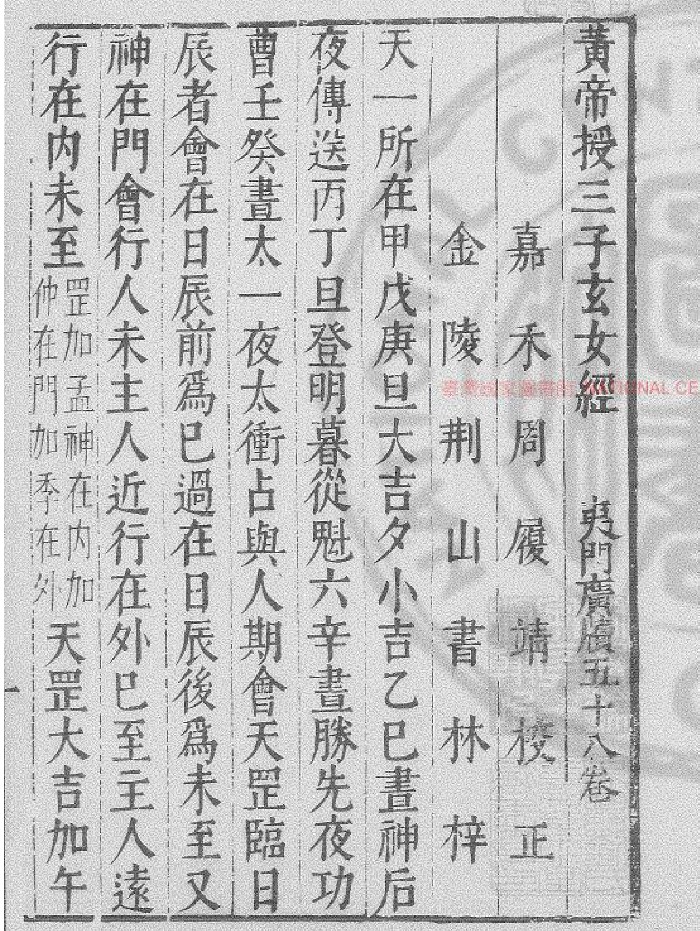 黃帝授三子玄女經 夷門廣牘五十八卷
嘉禾周履靖校正
金陵荆山書林梓
天一所在甲戊庚旦大吉夕小吉乙巳晝神后
夜傳送丙丁旦登明暮從魁六辛晝勝先夜功
曹壬癸晝太一夜太衝占與人期會天罡臨日
辰者會在日辰前爲巳過在日辰後爲未至又
神在門會行人未主人近行在外巳至主人遠
行在内未至罡加孟神在内加仲在門加季在外天罡大吉加午
一